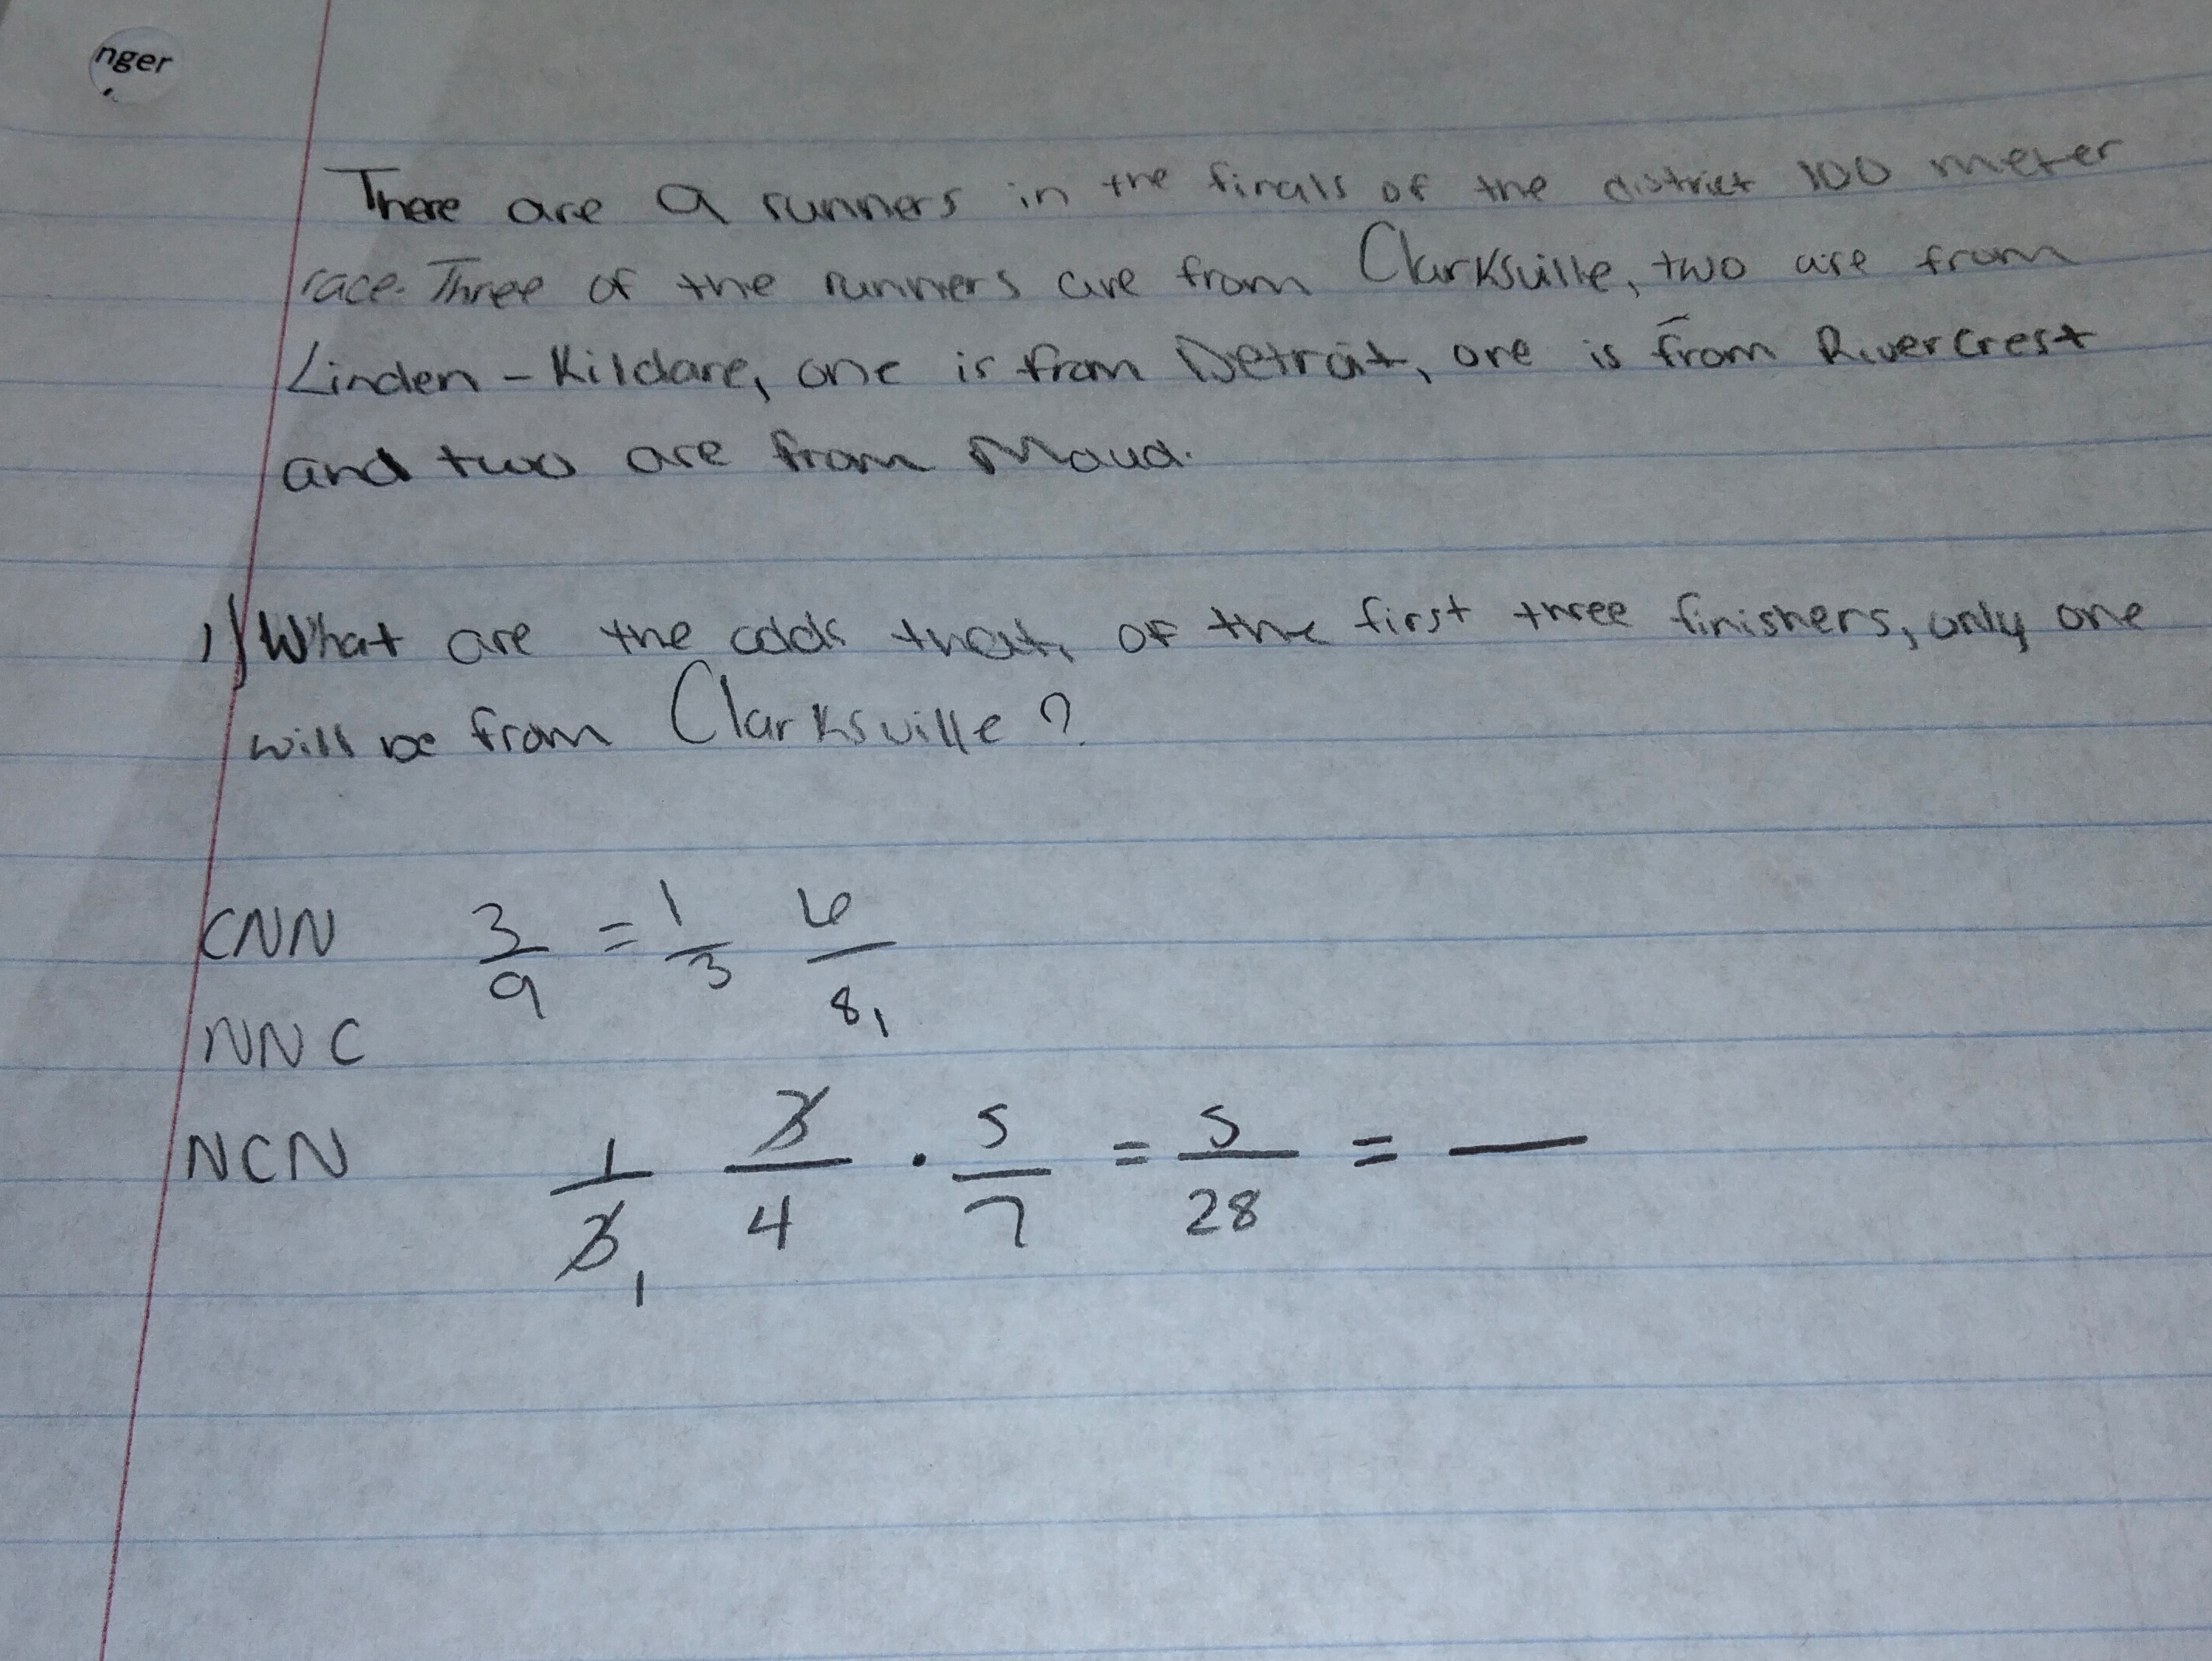 nger
There are 9 runners in the finals of the district 100 meter
race. Three of the runners are from Clarksville, two are from
Linden - Kildare, one is from Detroit, one is from Rivercrest
and two are from Maud.
1) What are the odds that, of the first three finishers, only one
will be from Clarksville?
CNN 3/9 = 1/3 6/8 1
NNC
NCN 1/3 1 3/4 · 5/7 = 5/28 = —